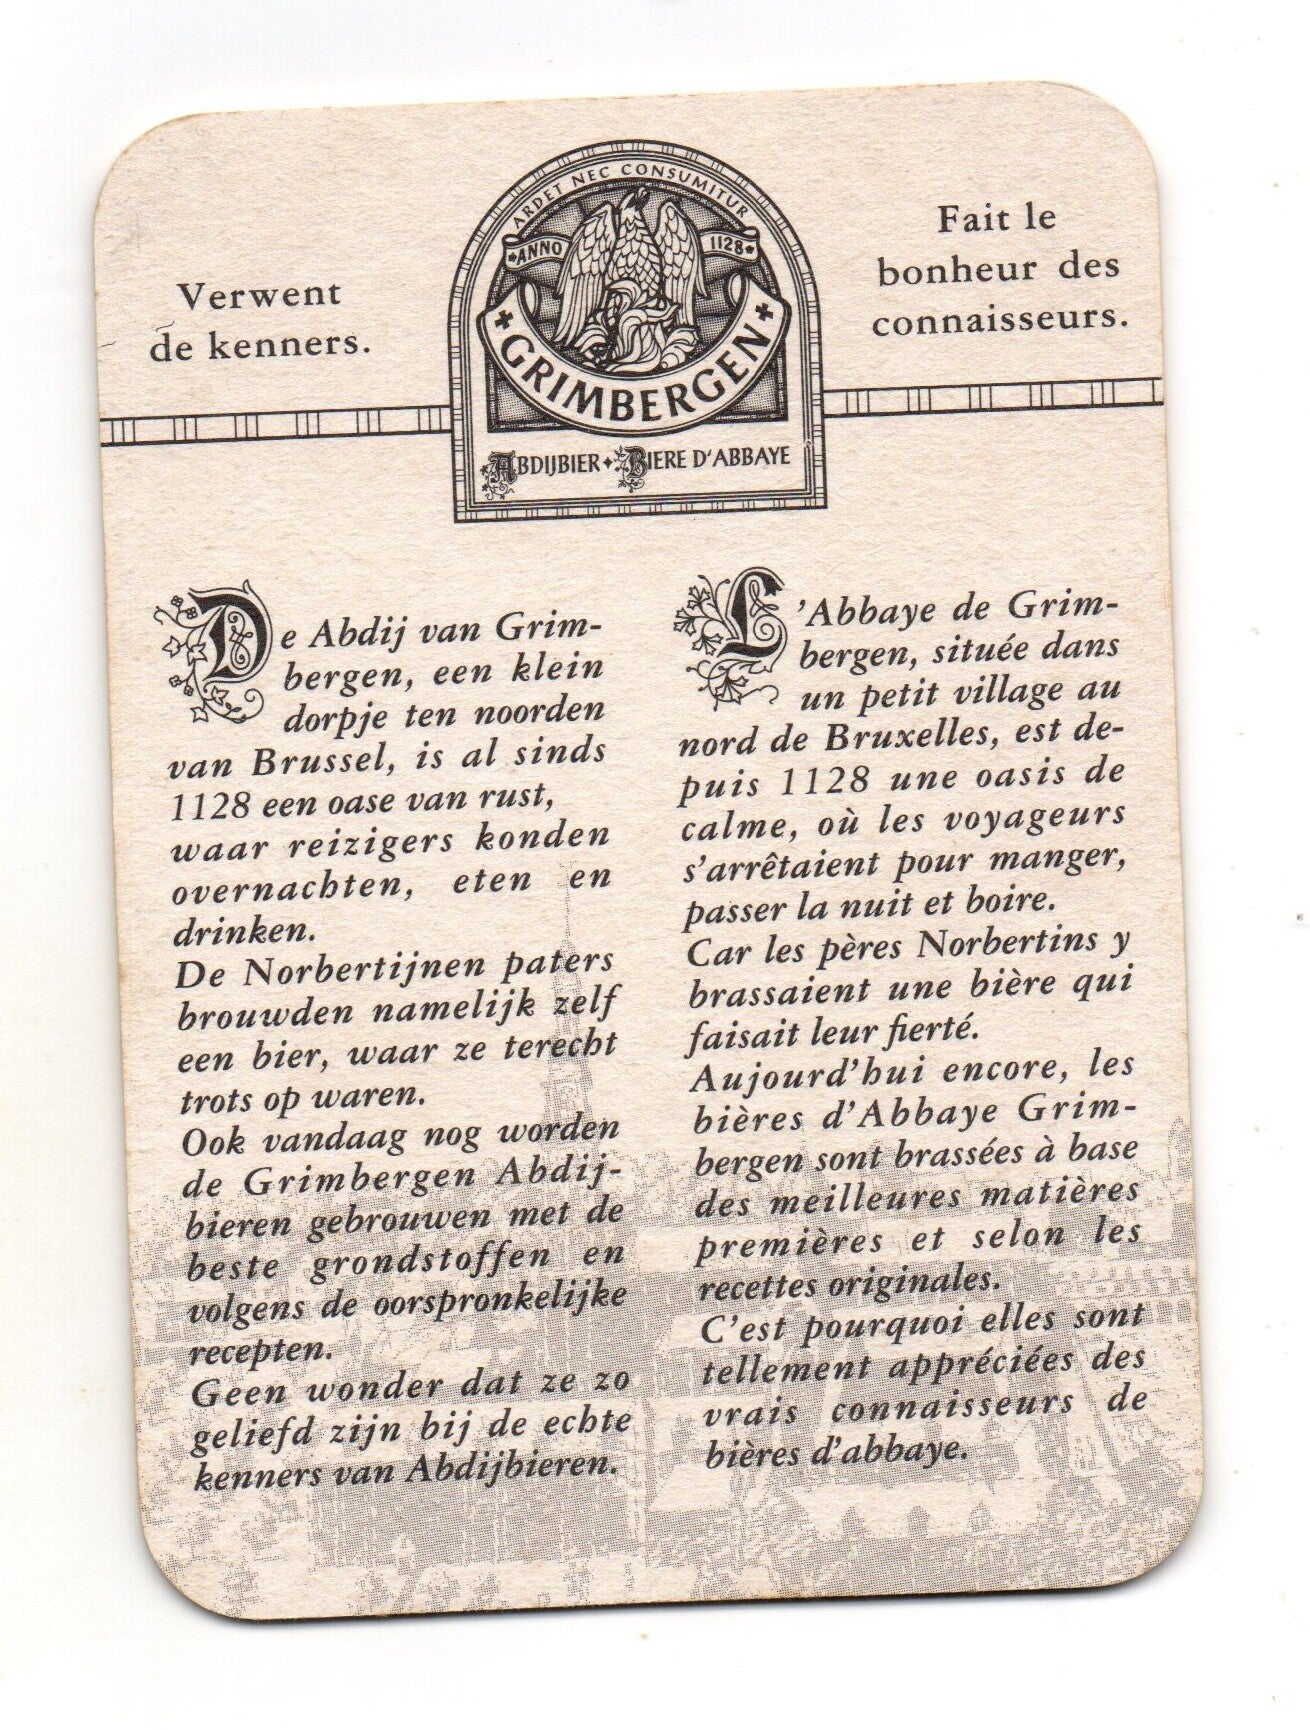 Verwent
de kenners.
ARDET NEC CONSUMITUR
ANNO 1128
GRIMBERGEN
ABDIJBIER BIERE D'ABBAYE
Fait le
bonheur des
connaisseurs.
De Abdij van Grim-
bergen, een klein
dorpje ten noorden
van Brussel, is al sinds
1128 een oase van rust,
waar reizigers konden
overnachten, eten en
drinken.
De Norbertijnen paters
brouwden namelijk zelf
een bier, waar ze terecht
trots op waren.
Ook vandaag nog worden
de Grimbergen Abdij-
bieren gebrouwen met de
beste grondstoffen en
volgens de oorspronkelijke
recepten.
Geen wonder dat ze zo
geliefd zijn bij de echte
kenners van Abdijbieren.
L'Abbaye de Grim-
bergen, située dans
un petit village au
nord de Bruxelles, est de-
puis 1128 une oasis de
calme, où les voyageurs
s'arrêtaient pour manger,
passer la nuit et boire.
Car les pères Norbertins y
brassaient une bière qui
faisait leur fierté.
Aujourd'hui encore, les
bières d'Abbaye Grim-
bergen sont brassées à base
des meilleures matières
premières et selon les
recettes originales.
C'est pourquoi elles sont
tellement appréciées des
vrais connaisseurs de
bières d'abbaye.